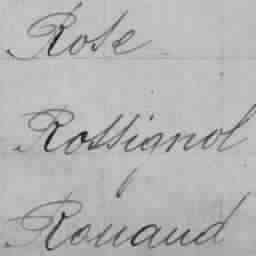 Rose
Rossignol
Rouaud